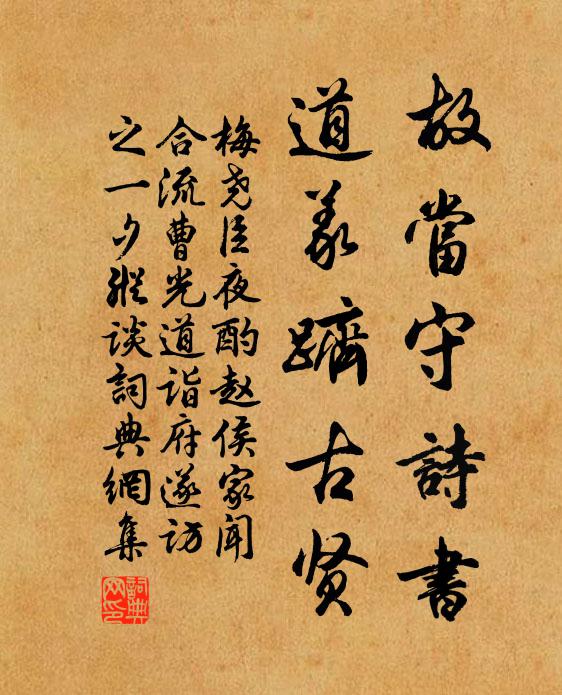 故當守詩書
道義躋古贤
梅尧臣夜酌赵侯家闻
合流曹光道诣府遂访
之一夕縱谈詞典網集
詞典网印